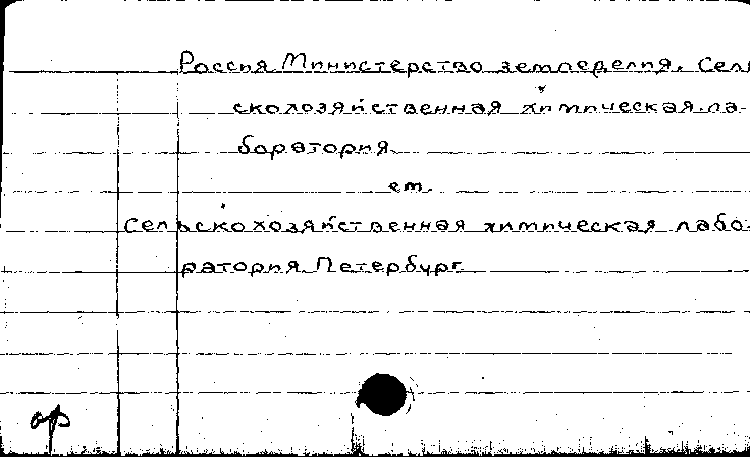 Россия. Министерство земледелия. Сель
скохозяйственная химическая ла-
боратория
см.
Сельскохозяйственная химическая лабо-
ратория. Петербург.
ор